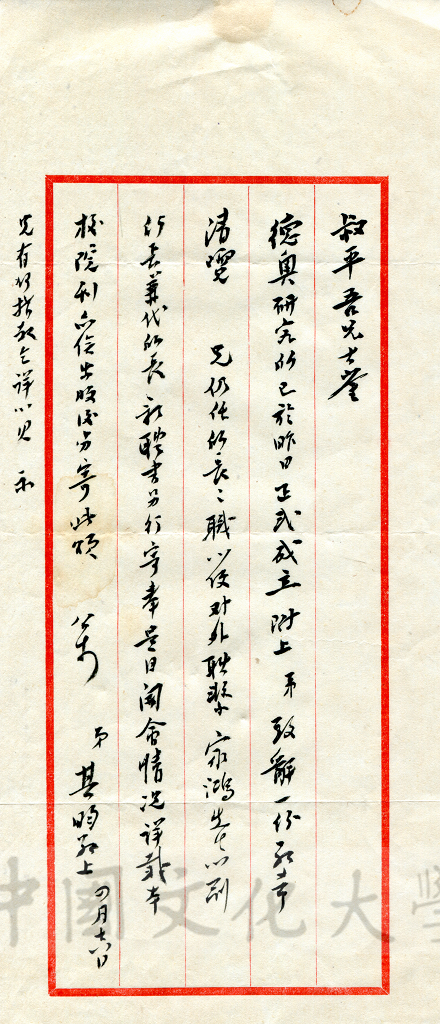 叔平吾兄大鉴
德奥研究所已於昨日正式成立附上 弟 致辭一份 敬希
清曌 兄仍任所長之職以便对外联繫 家鴻先生以副
所長兼代所長 新聘書另行寄奉 是日開會情況詳載本
校院刊 俟出版後另寄 此頌 公安
弟 其昀敬上 四月十六日
兄有何指教 乞詳以見示
中國文化大學